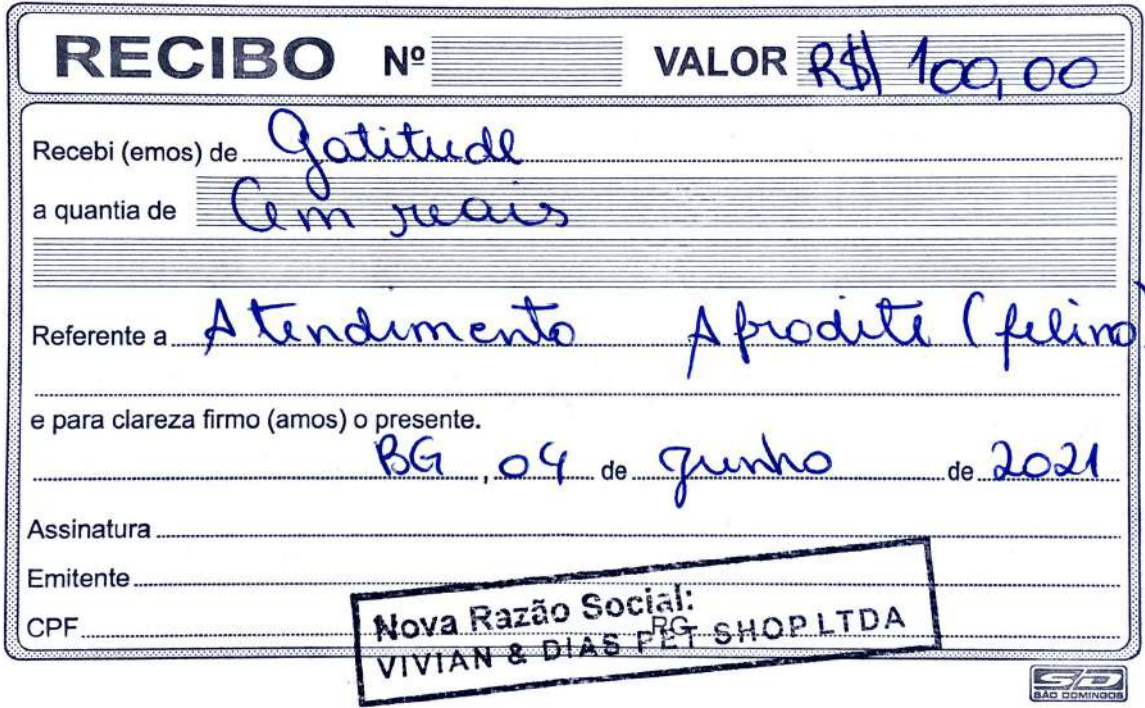 RECIBO Nº VALOR R$ 100,00
Recebi (emos) de Gatitude
a quantia de Cem reais
Referente a Atendimento Afrodite (felino)
e para clareza firmo (amos) o presente.
BG, 04 de Junho de 2021
Assinatura
Emitente
CPF RG
Nova Razão Social:
VIVIAN & DIAS PET SHOP LTDA
SD
SÃO DOMINGOS